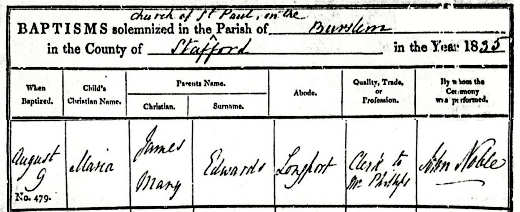 church of St Paul, in the
BAPTISMS solemnized in the Parish of Burslem
in the County of Stafford in the Year 1835
When Baptized.
Child's Christian Name.
Parents Name.
Christian.
Surname.
Abode.
Quality, Trade, or Profession.
By whom the Ceremony was performed.
August
9
No. 479.
Maria
James
Mary
Edwards
Longport
Clerk to
Mr Phillips
John Noble